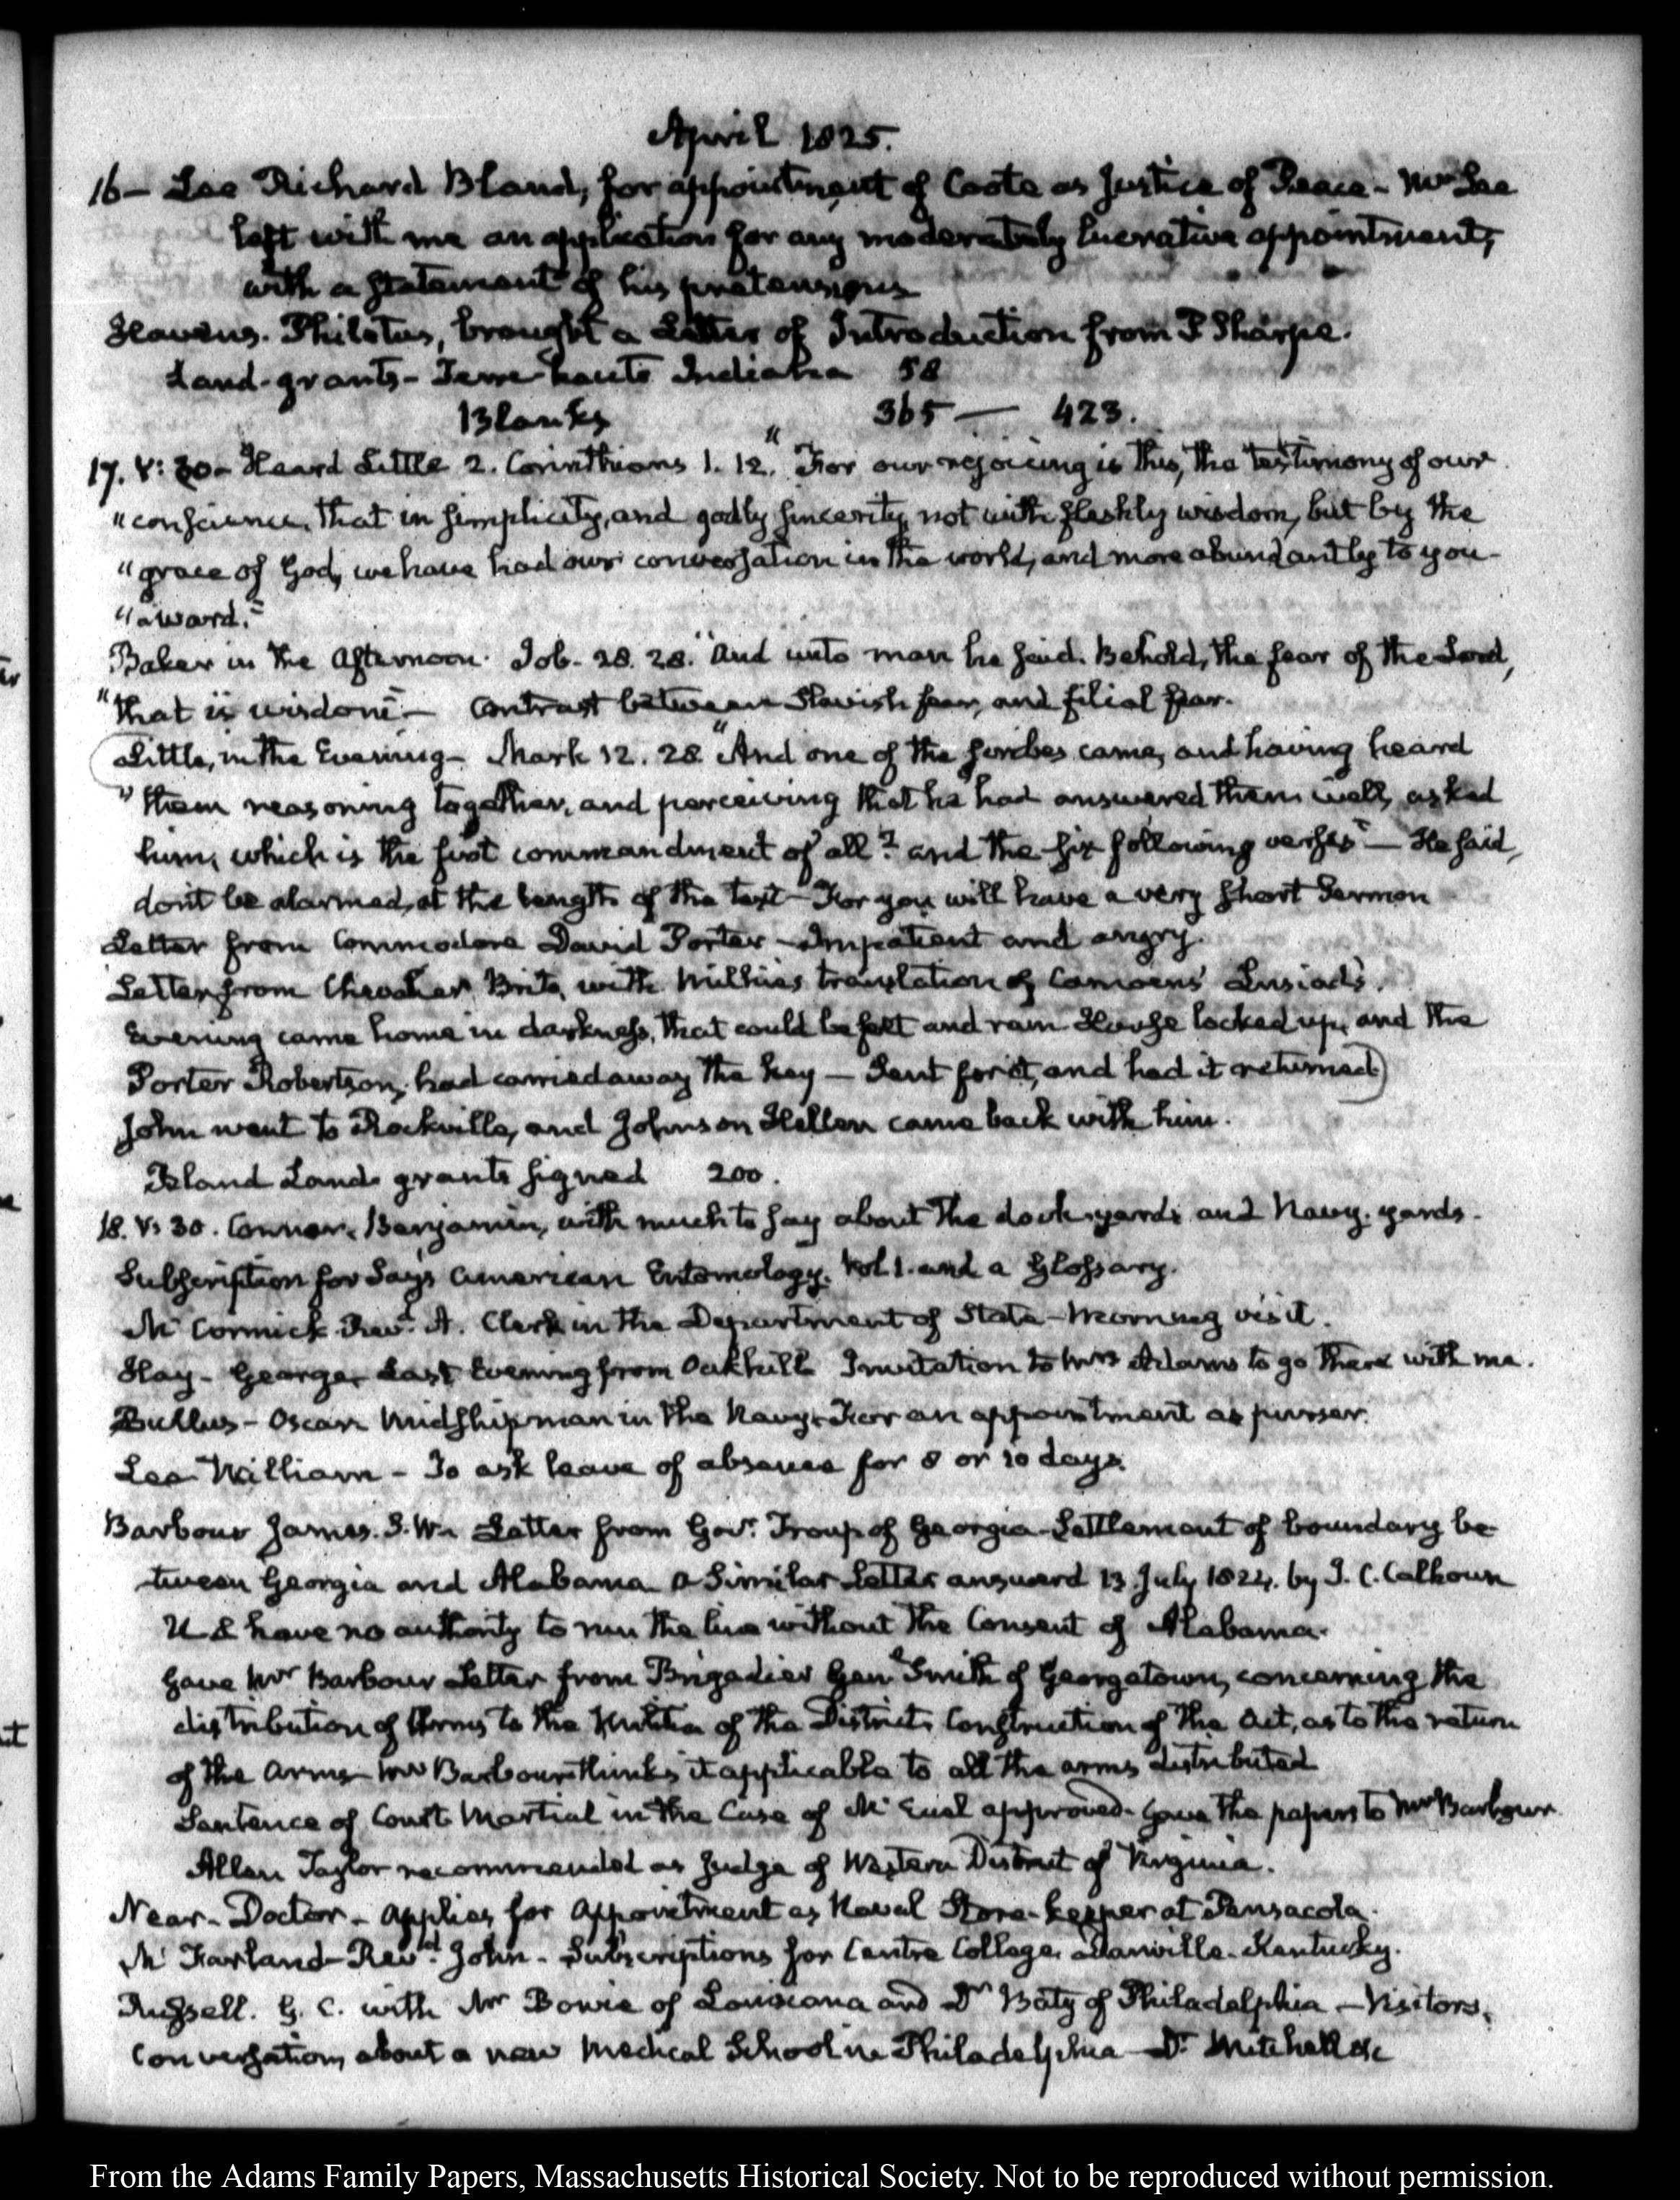 April 1825.
16 – Lee Richard Bland, for appointment of Coote as Justice of Peace – Mr Lee
left with me an application for any moderately lucrative appointment,
with a statement of his pretensions
Havens. Philetus, brought a Letter of Introduction from P Sharpe.
Land-grants – Terre-haute Indiana 58
Blanks 365 — 423.
17. V: 30 – Heard Little 2. Corinthians 1. 12. "For our rejoicing is this, the testimony of our
"conscience, that in simplicity, and godly sincerity, not with fleshly wisdom, but by the
"grace of God, we have had our conversation in the world, and more abundantly to you-
"award."
Baker in the afternoon. Job. 28. 28. "And unto man he said. Behold, the fear of the Lord,
"that is wisdom" – Contrast between Slavish fear, and filial fear.
Little, in the Evening – Mark 12. 28. "And one of the scribes came, and having heard
"them reasoning together, and perceiving that he had answered them well, asked
him, which is the first commandment of all? and the six following verses" — He said,
dont be alarmed, at the length of the text – For you will have a very short Sermon
Letter from Commodore David Porter – Impatient and angry.
Letter from Chevalier Brito, with Millies translation of Camoens' Lusiads.
Evening came home in darkness, that could be felt and rain House locked up, and the
Porter Robertson, had carried away the key — Sent for it, and had it returned)
John went to Rockville, and Johnson Hellen came back with him.
Bland Land grants signed 200.
18. V: 30. Connor. Benjamin, with much to say about the dock-yards and Navy-yards.
Subscription for Say's American Entomology. Vol. 1. and a Glossary.
Mc Cormick Revd. A. Clerk in the Department of State – Morning visit.
Hay – George, Last Evening from Oakhill Invitation to Mrs Adams to go there with me.
Bullus – Oscar Midshipman in the Navy – For an appointment as purser.
Lee William – To ask leave of absence for 8 or 10 days.
Barbour James. S. W. Letter from Govr. Troup of Georgia – Settlement of boundary be-
tween Georgia and Alabama a Similar Letter answered 13 July 1824. by J. C. Calhoun
U S have no authority to run the line without the Consent of Alabama.
Gave Mr Barbour Letter from Brigadier Genl Smith of Georgetown, concerning the
distribution of Arms to the Militia of the District. Construction of the Act, as to the return
of the Arms – Mr Barbour thinks it applicable to all the arms distributed
Sentence of Court Martial in the Case of approved – Gave the papers to Mr Barbour
Allen Taylor recommended as Judge of Western District of Virginia.
Near – Doctor – applies for Appointment as Naval Store-keeper at Pensacola.
Mc Farland – Revd. John – Subscriptions for Centre College. Danville – Kentucky.
Russell. G. C. with Mr Bowie of Louisiana and Dr Baty of Philadelphia – Visitors.
Conversation, about a new Medical School in Philadelphia – Dr. Mitchell &c
From the Adams Family Papers, Massachusetts Historical Society. Not to be reproduced without permission.